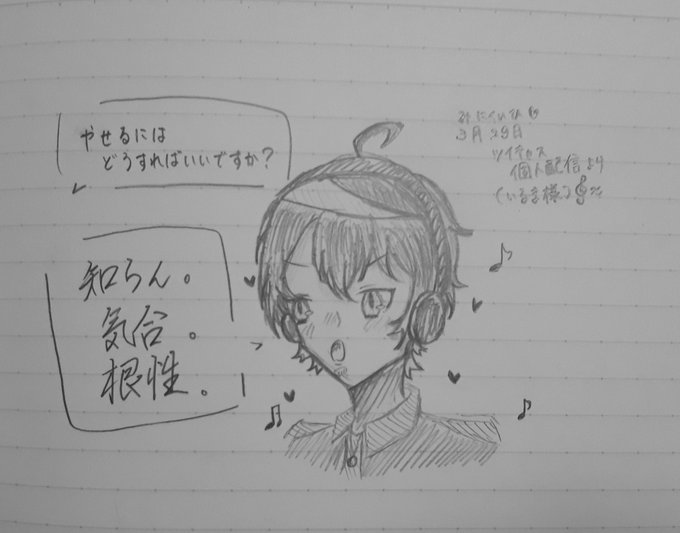 やせるには
どうすればいいですか?
知らん。
気合。
根性。
3月29日
ツイキャス
個人配信より
(いるま様)